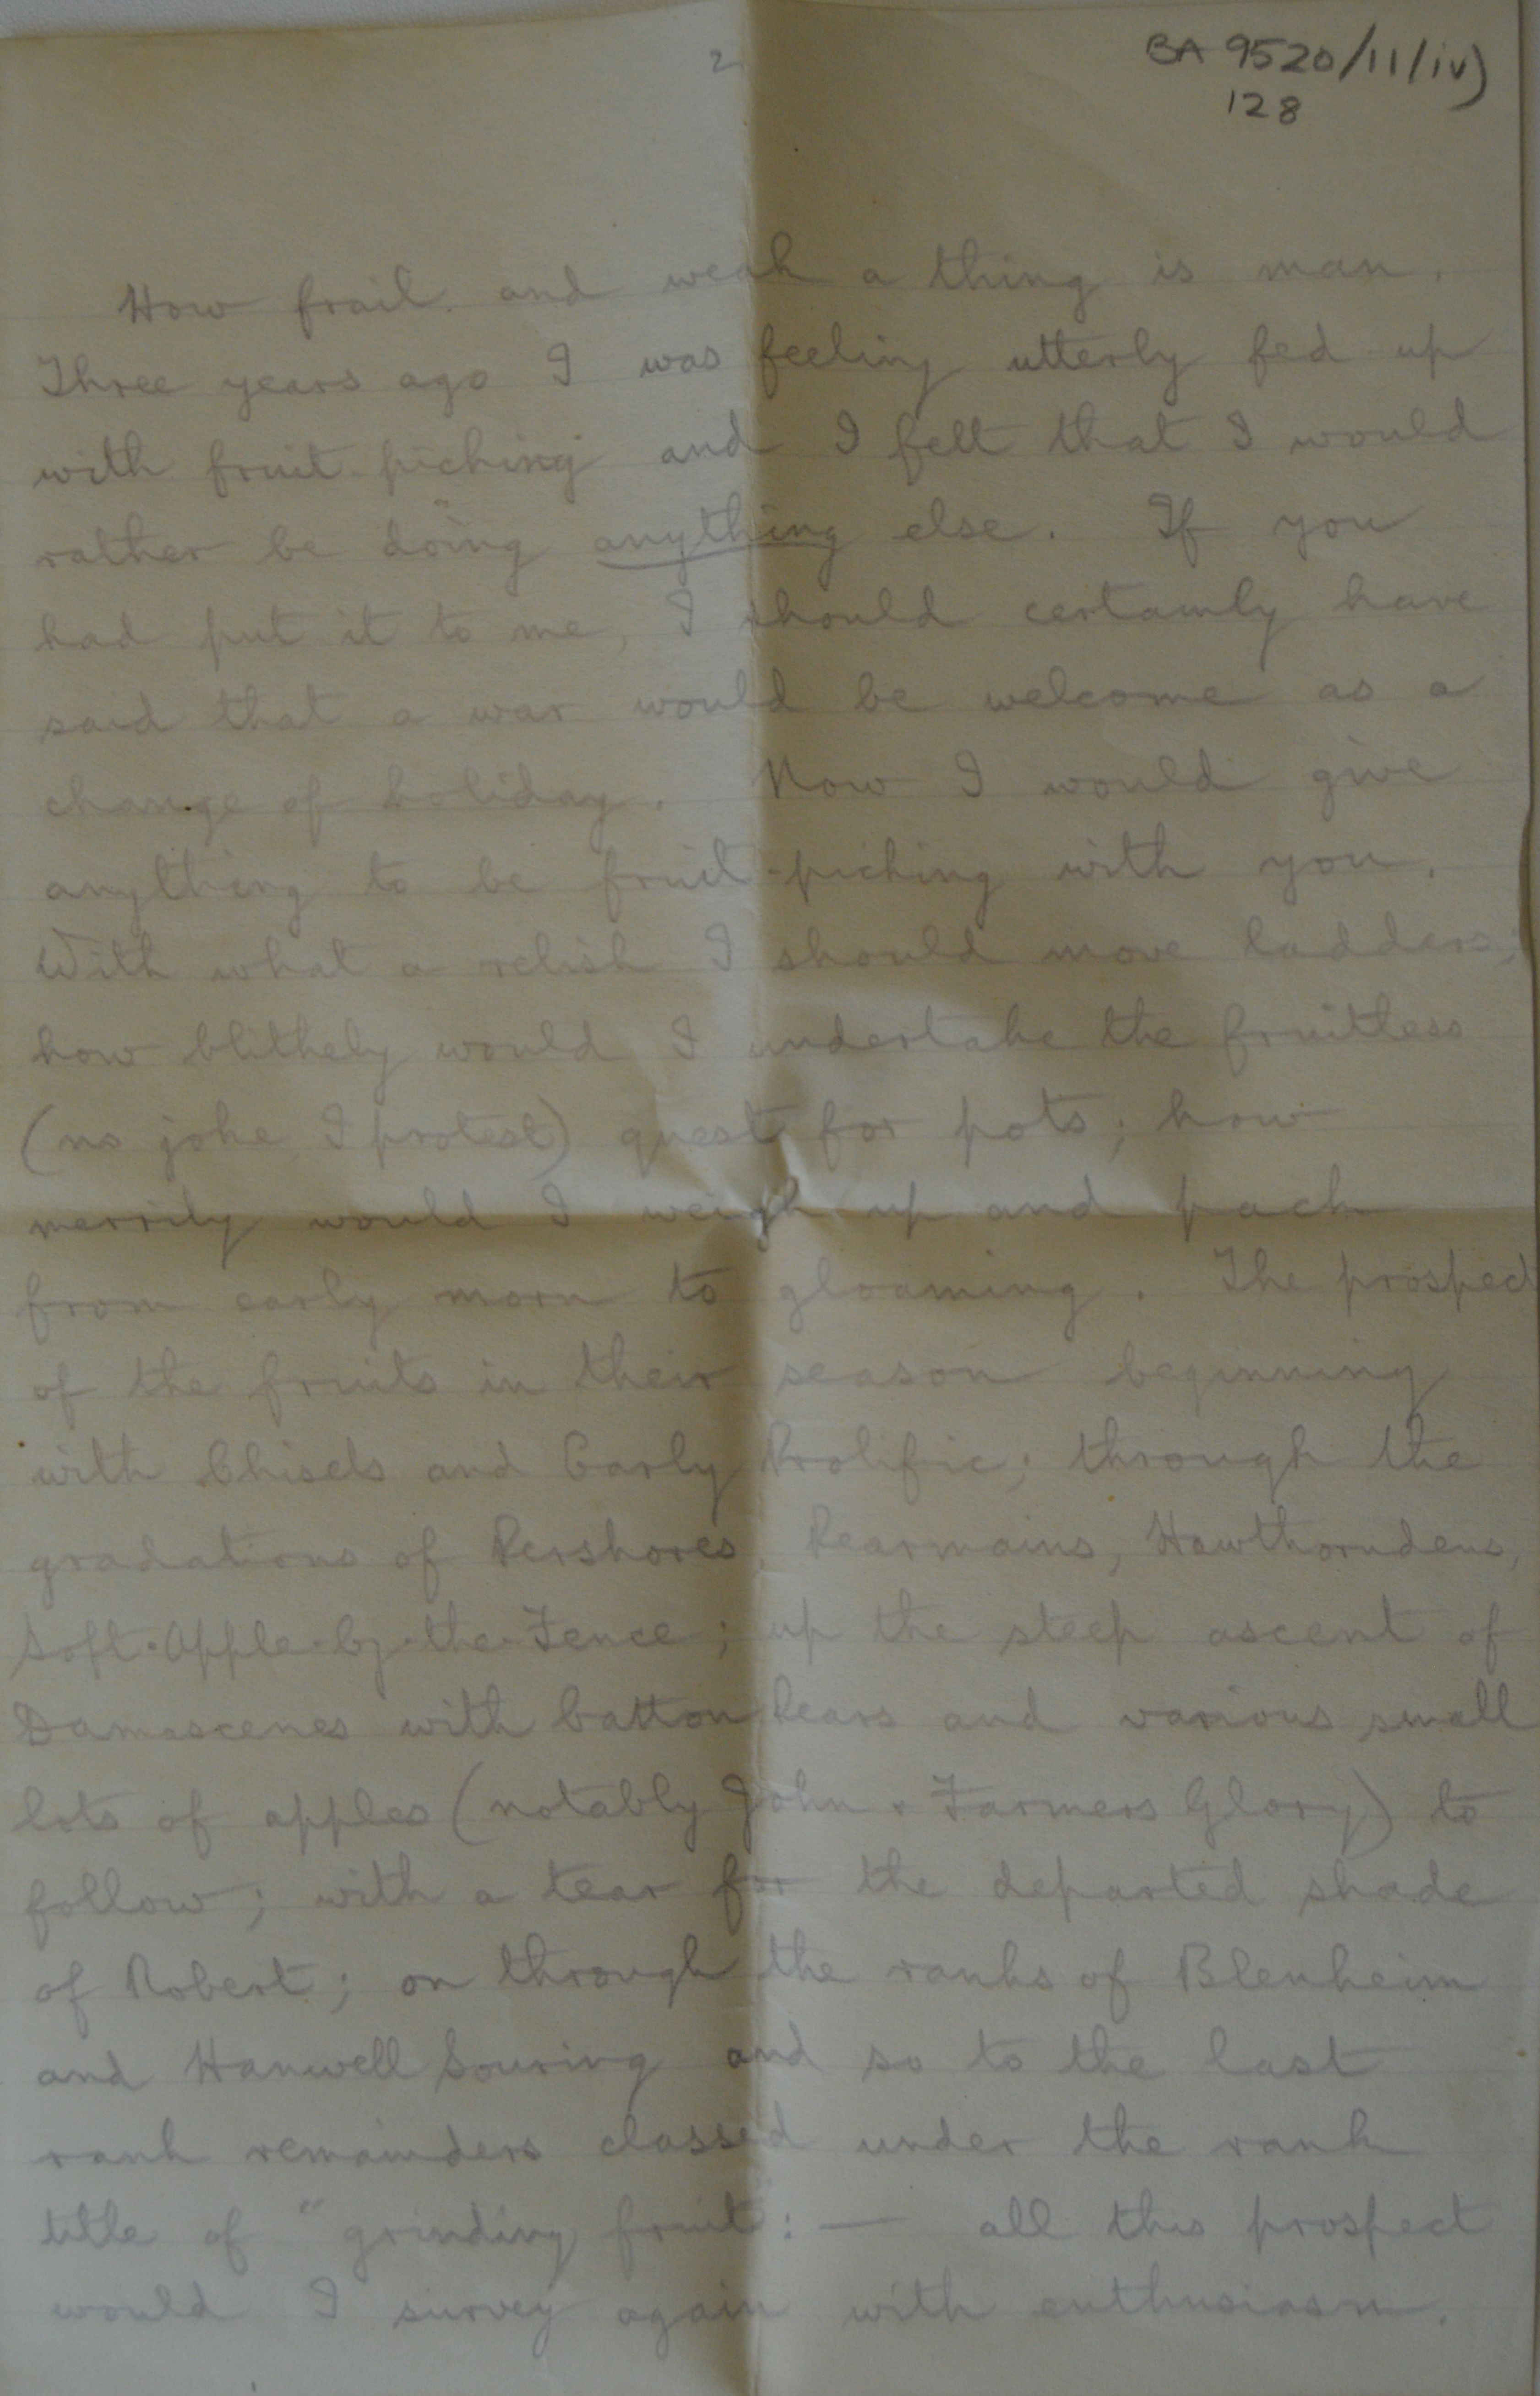 2
BA 9520/11/iv)
128
How frail and weak a thing is man.
Three years ago I was feeling utterly fed up
with fruit picking and I felt that I would
rather be doing anything else. If you
had put it to me, I should certainly have
said that a war would be welcome as a
change of holiday. Now I would give
anything to be fruit-picking with you.
With what a relish I should move ladders;
how blithely would I undertake the fruitless
(no joke, I protest) quest for pots; how
merrily would I weigh up and pack
from early morn to gloaming. The prospect
of the fruits in their season beginning
with Chisels and Early Prolific; through the
gradations of Pershores, Pearmains, Hawthorndens,
Soft-Apple-by-the-Fence; up the steep ascent of
Damascenes with Catton Pears and various small
lots of apples (notably John & Farmers Glory) to
follow; with a tear for the departed shade
of Robert; on through the ranks of Blenheim
and Hanwell Souring and so to the last
rank remainders classed under the rank
title of "grinding fruit": — all this prospect
would I survey again with enthusiasm.